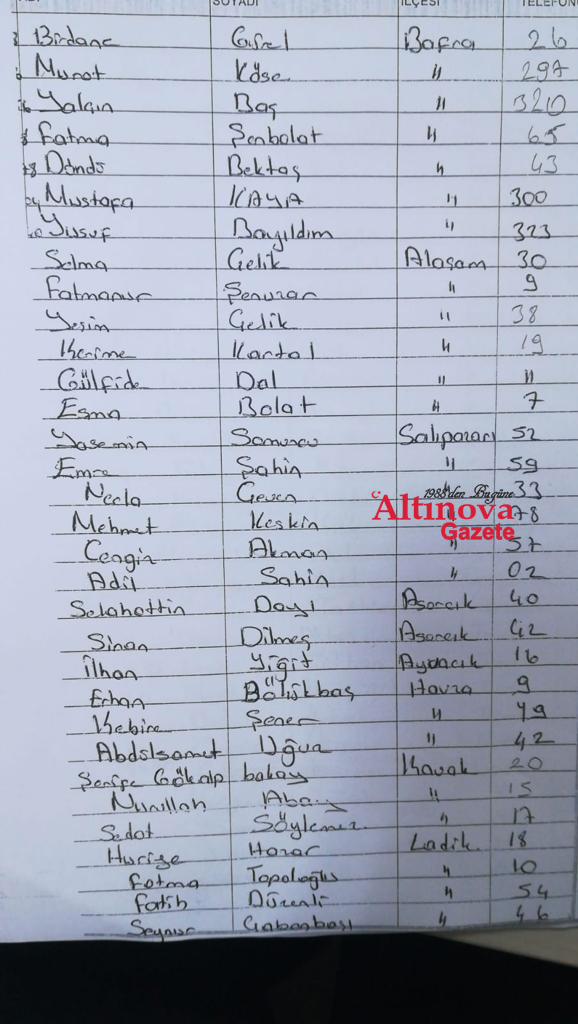 SOYADI İLÇESİ TELEFON
Birdane Gürel Bafra 26
Murat Köse " 297
Yalçın Baş " 320
Fatma Şenbolat " 65
Döndü Bektaş " 43
Mustafa KAYA " 300
Yusuf Bayıldım " 323
Selma Çelik Alaçam 30
Fatmanur Şenuzar " 9
Yeşim Gedik " 38
Kerime Kartal " 19
Gülfide Dal " "
Esma Bolat " 7
Yasemin Somuncu Salıpazarı 52
Emre Şahin " 59
1988'den Bugüne
Necla Geven 33
Altınova
Mehmet Keskin 78
Gazete
Cengiz Akman " 57
Adil Şahin " 02
Selahattin Dayı Asarcık 40
Sinan Dilmeç Asarcık 42
İlhan Yiğit Ayvacık 16
Erhan Bölükbaş Havza 9
Kebire Şener " 49
Abdülsamet Uğur " 42
Şerife Gökalp bakay Kavak 20
Nurullah Abay " 15
Sedat Söylemez " 17
Hurize Hazar Ladik 18
Fatma Topaloğlu " 10
Fatih Düzenli " 54
Seynur Çabanbaşı " 46